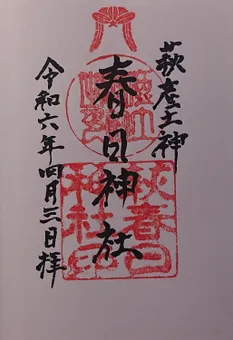 萩産土神
春日神社
令和六年四月三日拝
萩春日神社印